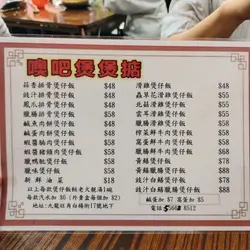 噢吧煲煲掂
蒜香排骨煲仔飯 $48
豉汁排骨煲仔飯 $48
鳳爪排骨煲仔飯 $48
臘腸排骨煲仔飯 $58
鹹魚肉餅煲仔飯 $58
鹹蛋肉餅煲仔飯 $58
蝦醬豬肉煲仔飯 $58
蝦醬雞肉煲仔飯 $58
臘鴨髀煲仔飯 $58
臘味煲仔飯 $58
新鮮油菜 $18
滑雞煲仔飯 $48
蟲草花滑雞煲仔飯 $55
北菇滑雞煲仔飯 $55
雲耳滑雞煲仔飯 $55
臘腸滑雞煲仔飯 $58
榨菜鮮牛肉煲仔飯 $58
窩蛋鮮牛肉煲仔飯 $58
黃鱔煲仔飯 $78
豉汁黃鱔煲仔飯 $78
豉汁白鱔煲仔飯 $78
豉汁白鱔臘腸煲仔飯 $88
以上每款煲仔飯輚老火靚湯1碗
每款汽水加 $6 (外賣盒每個加 $2)
地址:九龍旺角白楊街17號地下
鹹蛋加 $7 窩蛋加 $5